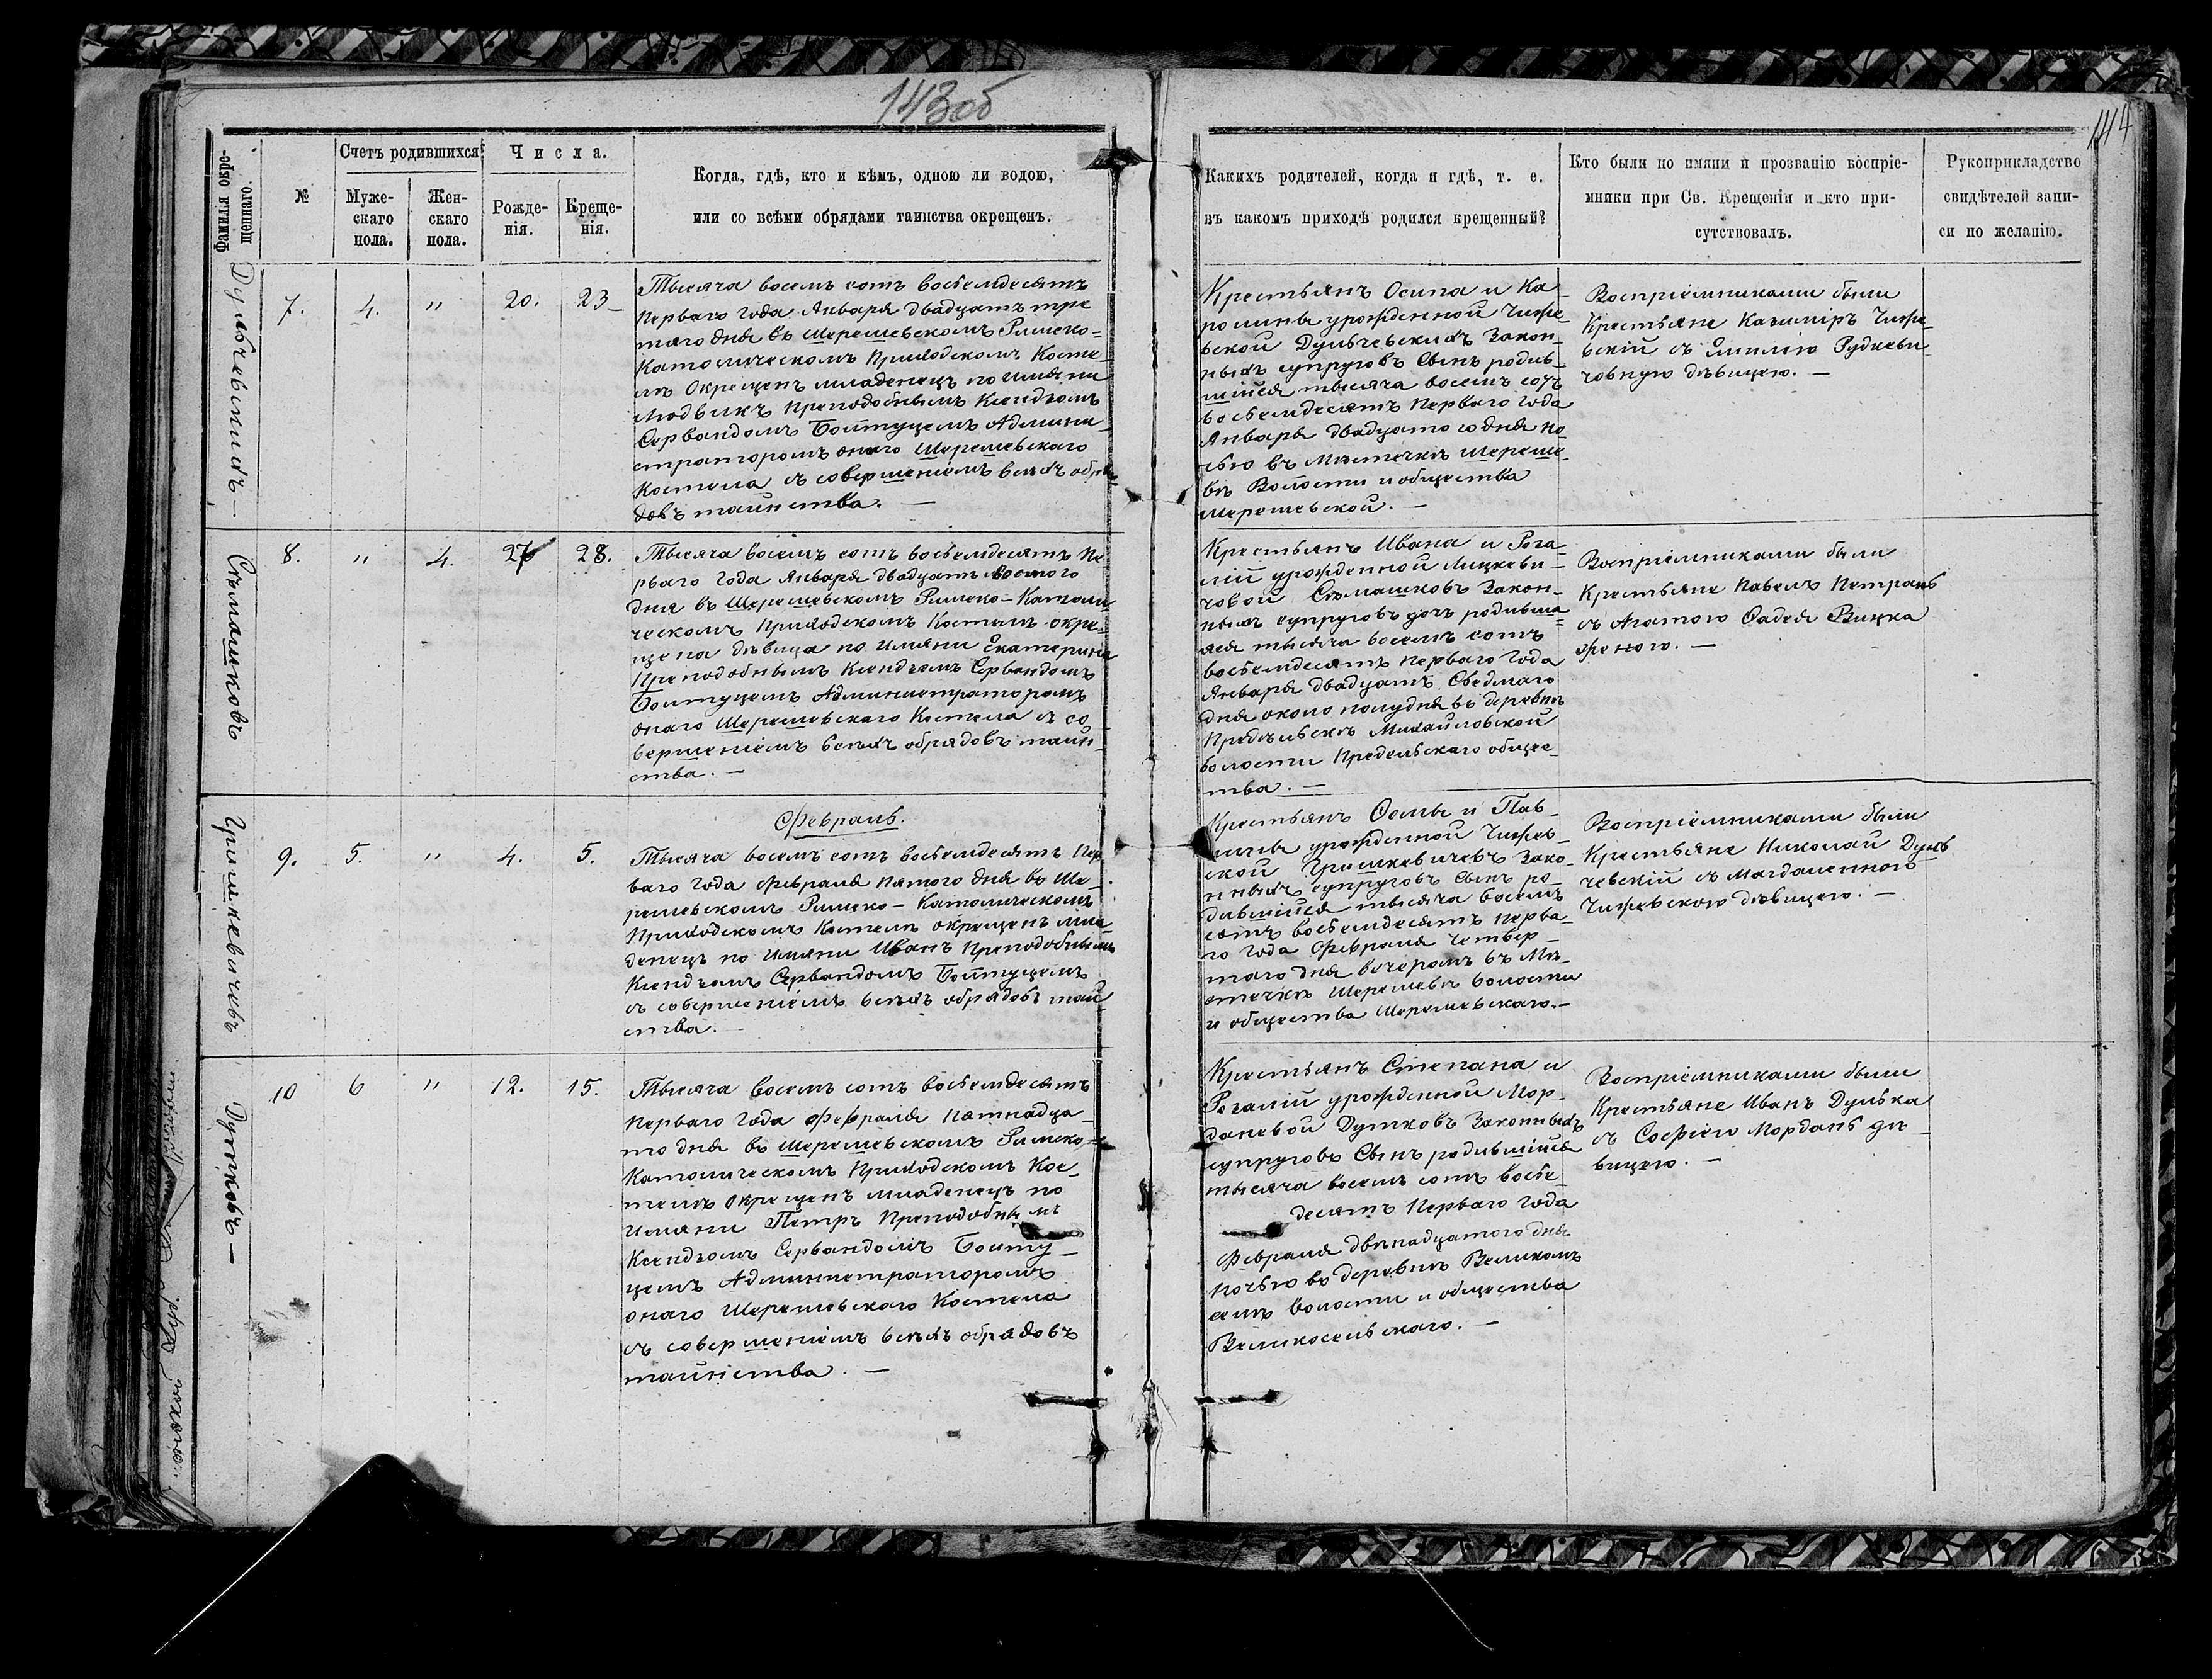 143об
144
Фамилія окре-
щеннаго.
№
Счетъ родившихся:
Муже-
скаго
пола.
Жен-
скаго
пола.
Числа.
Рожде-
нія.
Креще-
нія.
Когда, гдѣ, кто и кѣмъ, одною ли водою,
или со всѣми обрядами таинства окрещенъ.
Какихъ родителей, когда и гдѣ, т. е.
въ какомъ приходѣ родился крещенный?
Кто были по имяни и прозванію воспріе-
мники при Св. Крещеніи и кто при-
сутствовалъ.
Рукоприкладство
свидѣтелей запи-
си по желанію.
Дульчевскихъ –
7. 4. " 20. 23
Тысяча восемь сотъ восьемдесятъ
перваго года Января двадцать тре
тяго дня въ Шерешевскомъ Римско=
Католическомъ Приходскомъ Косте_
лѣ Окрещенъ младенецъ по имяни
Людвикъ Преподобнымъ Ксендзомъ
Сервандомъ Болтуцемъ Админи_
страторомъ онаго Шерешевскаго
Костела съ совершеніемъ всѣхъ обря
довъ таинства. —
Крестьянъ Осипа и Ка_
ролины урожденной Чиже_
вской Дульчевскихъ Закон_
ныхъ супруговъ Сынъ родив_
шійся тысяча восемь сотъ
восьемдесятъ перваго года
Января двадцатого дня но_
чью въ Мѣстечкѣ Шереше_
вѣ Волости и общества
Шерешевской. —
Воспріемниками были
Крестьяне Казиміръ Чиже_
вскій съ Эмилію Рудкеви_
човную дѣвицею. —
Съмашковъ
8. " 4. 27 28.
Тысяча восемь сотъ восьемдесятъ пе
рваго года Января двадцать восмого
дня въ Шерешевскомъ Римско-Католи
ческомъ Приходскомъ Костелѣ окре_
щена дѣвица по имяни Екатерина
Преподобнымъ Ксендзомъ Сервандомъ
Болтуцемъ Администраторомъ
онаго Шерешевскаго Костела съ со
вершеніемъ всѣхъ обрядовъ таин_
ства. —
Крестьянъ Ивана и Роза_
лій урожденной Лицкеви_
човой Съмашковъ Закон_
ныхъ супруговъ дочь родивша=
яся тысяча восемь сотъ
восьемдесятъ перваго года
Января двадцать Сведмаго
дня около полудня въ деревнѣ
Предѣльскъ Михайловской
волости Предельскаго общес_
тва. —
Воспріемниками были
Крестьяне Павелъ Петрань
съ Агатою Фадея Вицка
женою. —
Гришкевичевъ
Февраль.
9. 5. " 4. 5.
Тысяча восемь сотъ восьемдесятъ пер
ваго года Февраля пятого дня въ Ше_
решевскомъ Римско-Католическомъ
Приходскомъ Костелѣ окрещенъ мла_
денецъ по имяни Иванъ Преподобнымъ
Ксендзомъ Сервандомъ Болтуцемъ
съ совершеніемъ всѣхъ обрядовъ таин
ства. —
Крестьянъ Фомы и Пав_
лины урожденной Чижев_
ской Гришкевичевъ Зако_
нныхъ супруговъ Сынъ ро_
дившійся тысяча восемь
сотъ восьемдесятъ перва_
го года Февраля четвер_
таго дня вечеромъ въ Мѣ_
стечкѣ Шерешевѣ волости
и общества Шерешевскаго.—
Воспріемниками были
Крестьяне Николай Дуль
чевскій съ Магдаленною
Чижевскою дѣвицею. —
Дутковъ —
10 6 " 12. 15.
Тысяча восемь сотъ восьемдесятъ
перваго года Февраля пятнадца_
то дня въ Шерешевскомъ Римско=
Католическомъ Приходскомъ Кос_
телѣ окрещенъ младенецъ по
имяни Петръ Преподобнымъ
Ксендзомъ Сервандомъ Болту_
цемъ Администраторомъ
онаго Шерешевскаго Костела
съ совершеніемъ всѣхъ обрядовъ
таинства. —
Крестьянъ Степана и
Розалій урожденной Мор_
даневой Дутковъ Законныхъ
супруговъ Сынъ родившійся
тысяча восемь сотъ восье_
десятъ перваго года
Февраля двѣнадцатого дня
ночью въ деревнѣ Великомъ
селѣ волости и общества
Великосельскаго. —
Воспріемниками были
Крестьяне Иванъ Дулька
съ Софіею Мордань дѣ_
вицею. —